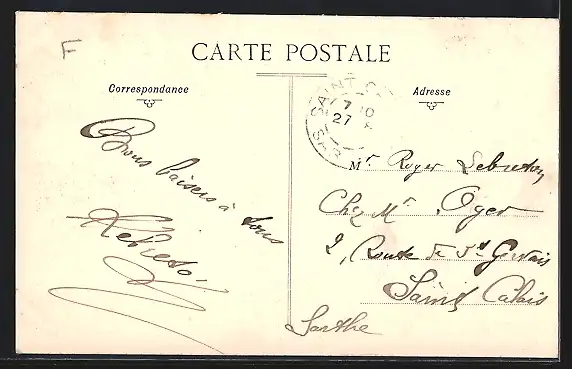 F
CARTE POSTALE
Correspondance
Adresse
SAINT-C
7 10
27
SAR
Bons baisers à tous
Mr Roger Lebreton
Chez Mr Oger
2, Route de St Gervais
Saint Calais
Sarthe